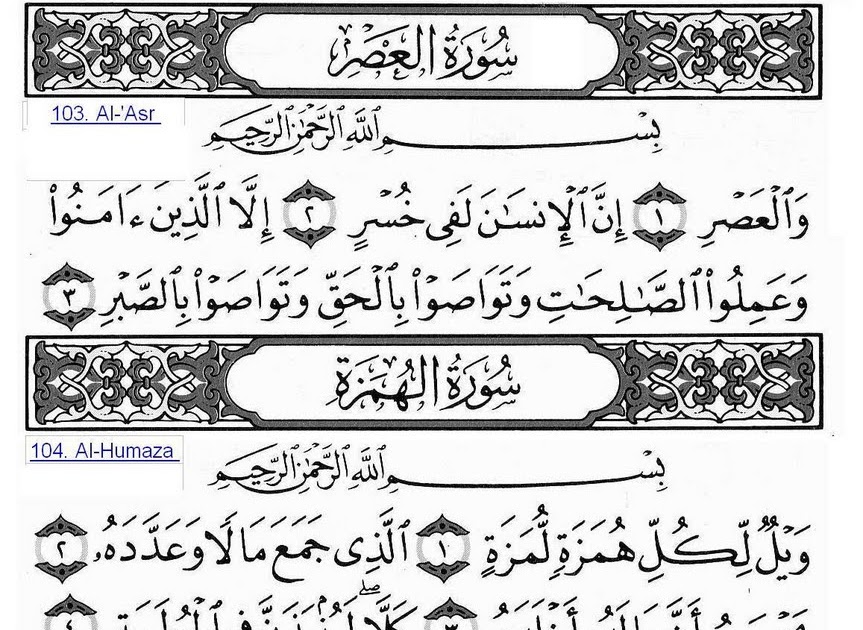 سُورَةُ العَصْرِ
103. Al-'Asr
بِسْمِ ٱللَّهِ ٱلرَّحْمَٰنِ ٱلرَّحِيمِ
وَٱلْعَصْرِ ١ إِنَّ ٱلْإِنسَٰنَ لَفِى خُسْرٍ ٢ إِلَّا ٱلَّذِينَ ءَامَنُوا۟
وَعَمِلُوا۟ ٱلصَّٰلِحَٰتِ وَتَوَاصَوْا۟ بِٱلْحَقِّ وَتَوَاصَوْا۟ بِٱلصَّبْرِ ٣
سُورَةُ الهُمَزَةِ
104. Al-Humaza
بِسْمِ ٱللَّهِ ٱلرَّحْمَٰنِ ٱلرَّحِيمِ
وَيْلٌ لِّكُلِّ هُمَزَةٍ لُّمَزَةٍ ١ ٱلَّذِى جَمَعَ مَالًا وَعَدَّدَهُۥ ٢